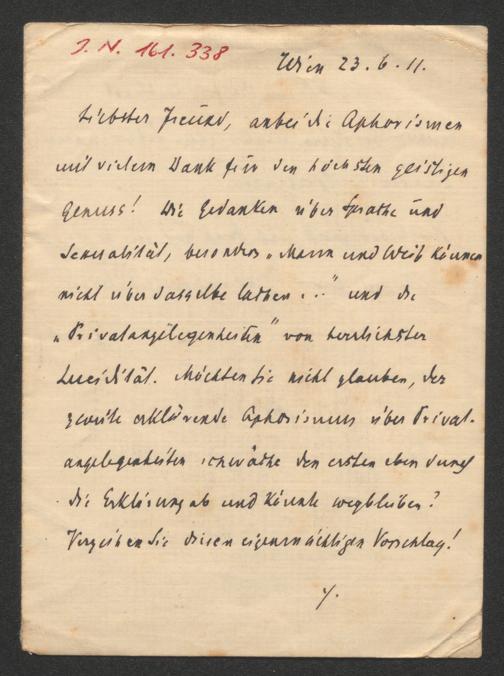 J. N. 161.338
Wien 23.6.11.
Liebster Freund, anbei die Aphorismen
mit vielem Dank für den höchsten geistigen
Genuss! Die Gedanken über Sprache und
Sexualität, besonders „Mann und Weib können
nicht über dasselbe lachen..." und die
„Privatangelegenheiten" von herrlichster
Lucidität. Möchten Sie nicht glauben, der
zweite erklärende Aphorismus über Privat-
angelegenheiten schwäche den ersten eben durch
die Erklärung ab und könnte wegbleiben?
Verzeihen Sie diesen eigenmächtigen Vorschlag!